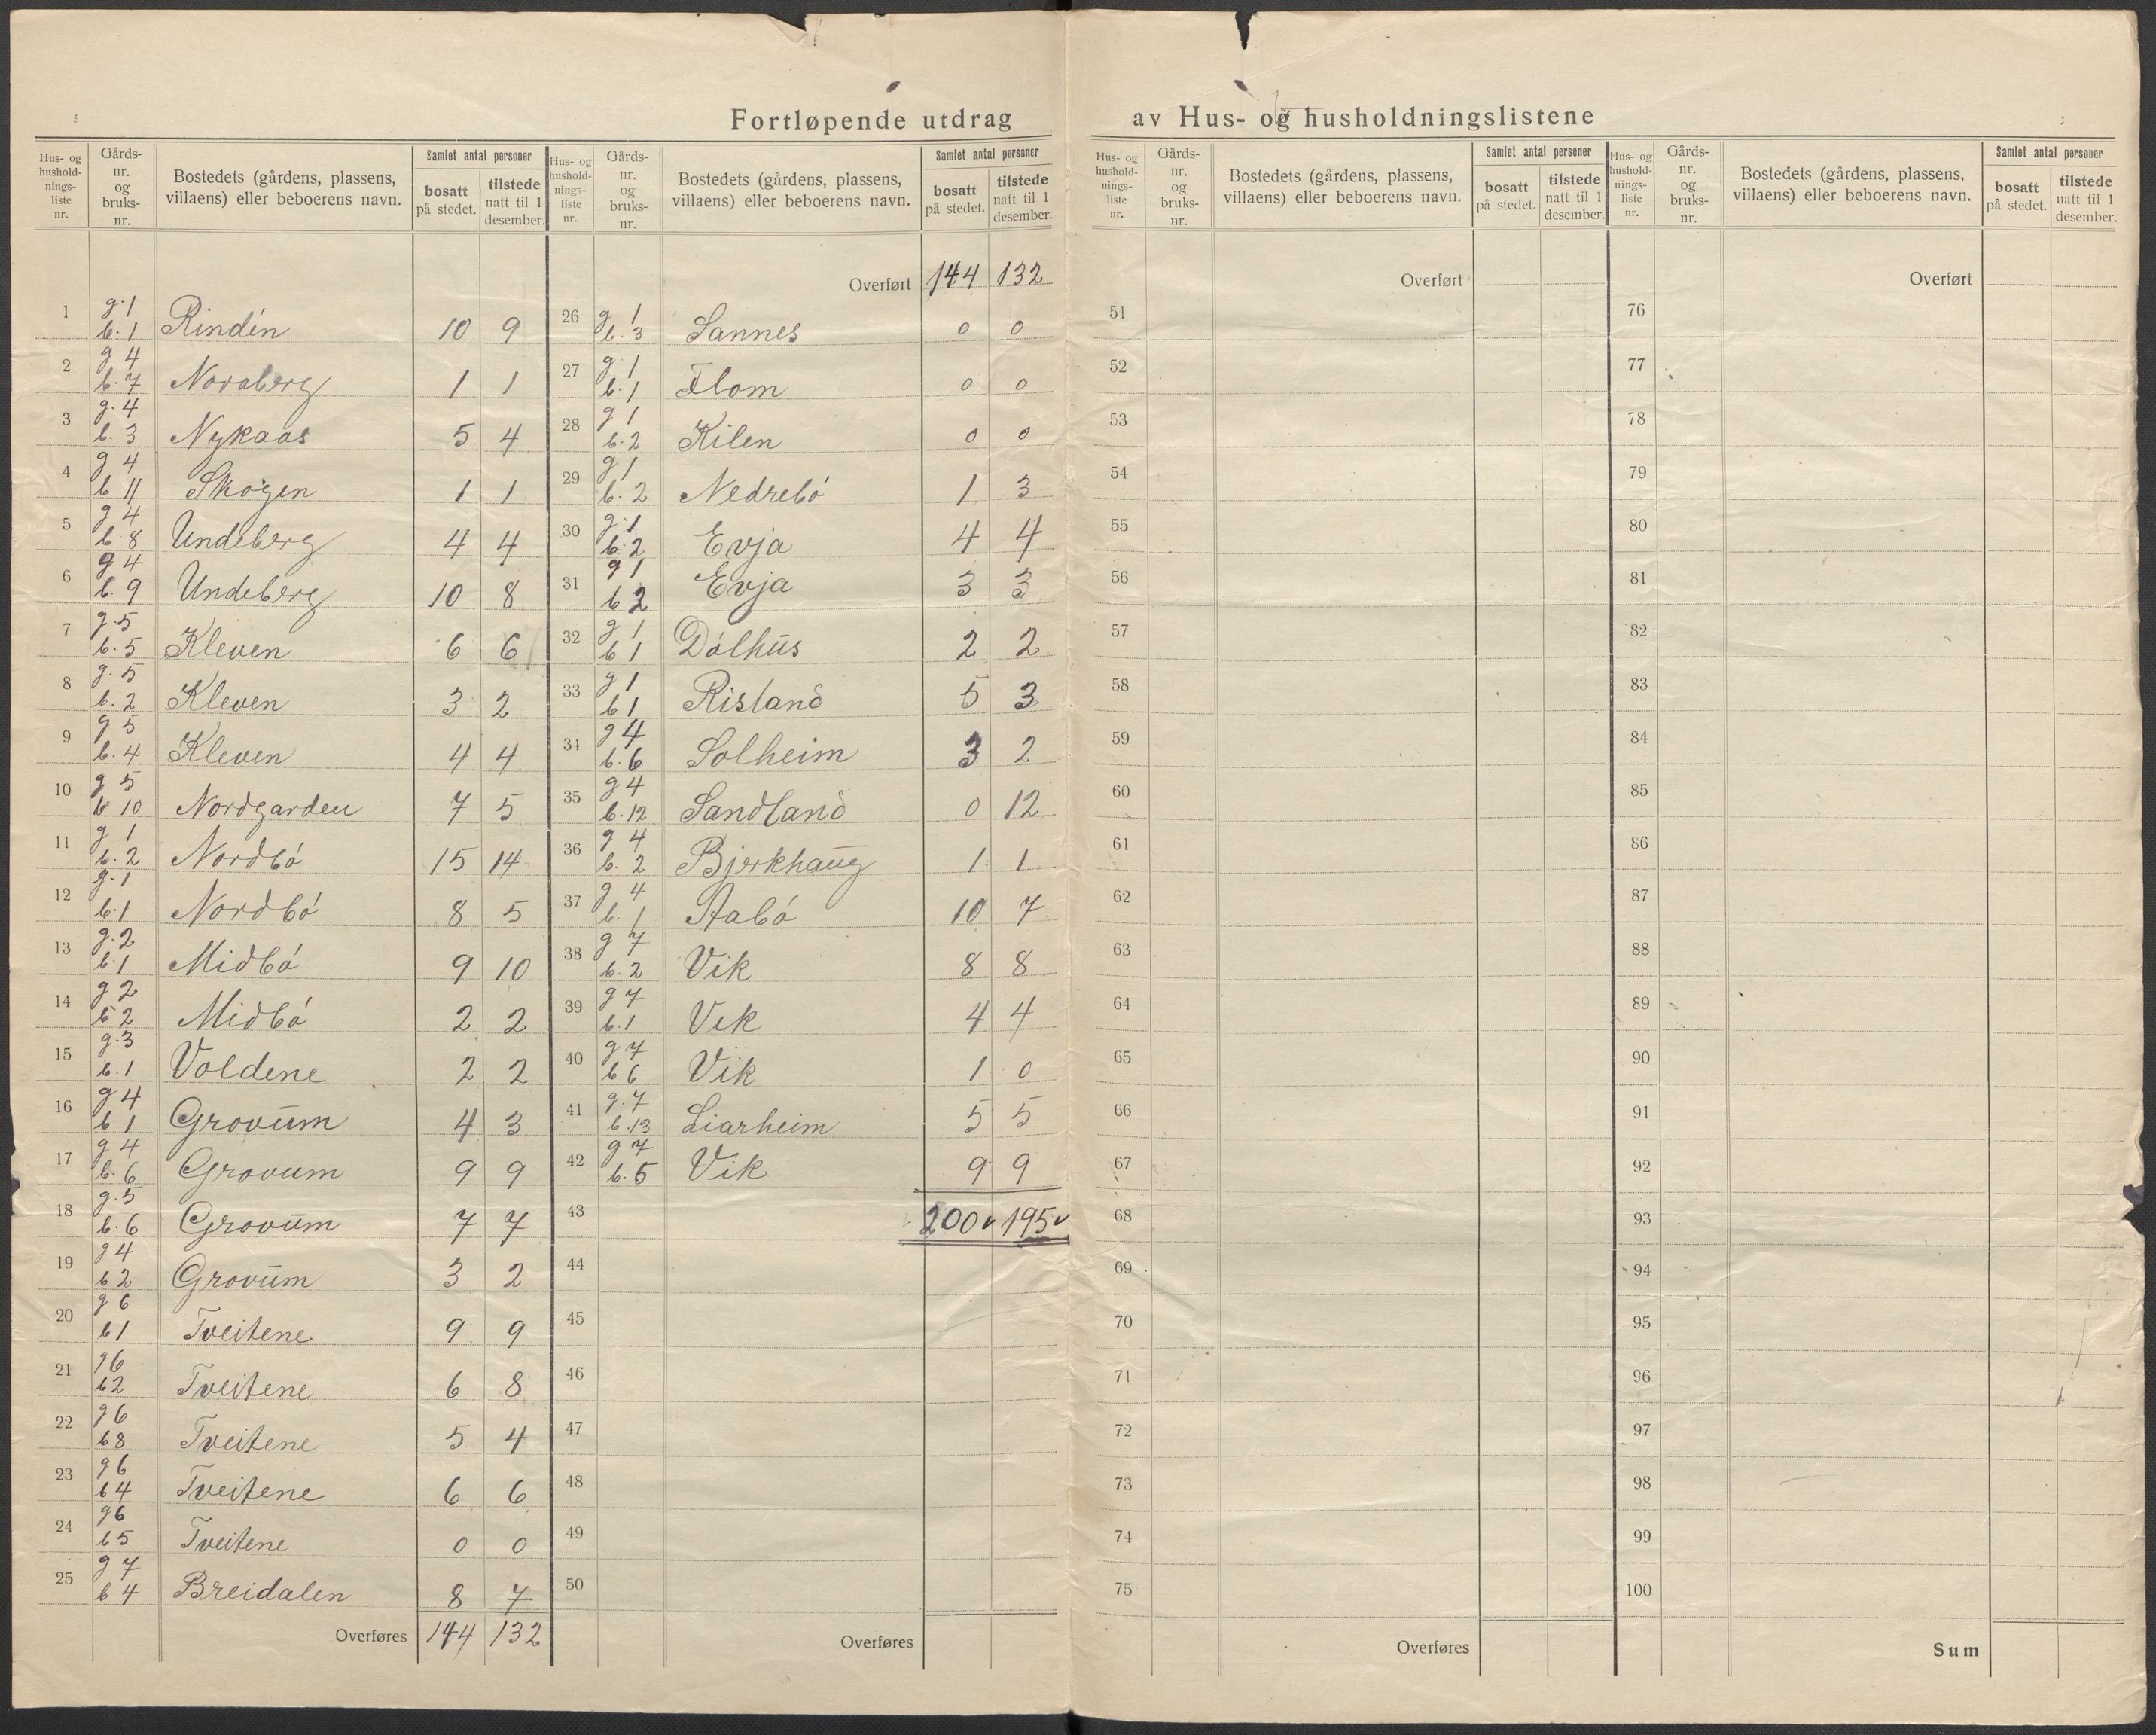 Fortløpende utdrag av Hus- og husholdningslistene
Hus- og hushold- nings- liste nr. | Gårds- nr. og bruks- nr. | Bostedets (gårdens, plassens, villaens) eller beboerens navn. | Samlet antal personer | bosatt på stedet. | tilstede natt til 1 desember.
1 g.1 b.1 Rindin 10 9
2 g 4 b.7 Noraberg 1 1
3 g.4 b.3 Nykaas 5 4
4 g 4 b 11 Skogen 1 1
5 g 4 b 8 Undeberg 4 4
6 g 4 b.9 Undeberg 10 8
7 g.5 b.5 Kleven 6 6
8 g.5 b.2 Kleven 3 2
9 g 5 b.4 Kleven 4 4
10 g 5 b 10 Nordgarden 7 5
11 g 1 b.2 Nordbó 15 14
12 g.1 b.1 Nordbó 8 5
13 g.2 b.1 Midbó 9 10
14 g 2 b 2 Midbó 2 2
15 g.3 b.1 Voldene 2 2
16 g 4 b 1 Grovum 4 3
17 g 4 b.6 Grovum 9 9
18 g.5 b.6 Grovum 7 7
19 g 4 b 2 Grovum 3 2
20 g 6 b 1 Tveitene 9 9
21 g 6 b 2 Tveitene 6 8
22 g 6 b 8 Tveitene 5 4
23 g 6 b 4 Tveitene 6 6
24 g 6 b 5 Tveitene 0 0
25 g 7 b 4 Breidalen 8 7
Overføres 144 132
Hus- og hushold- nings- liste nr. | Gårds- nr. og bruks- nr. | Bostedets (gårdens, plassens, villaens) eller beboerens navn. | Samlet antal personer | bosatt på stedet. | tilstede natt til 1 desember.
Overført 144 132
26 g 1 b.3 Sannes 0 0
27 g 1 b.1 Flom 0 0
28 g 1 b.2 Kilen 0 0
29 g 1 b.2 Nedrebó 1 3
30 g.1 b.2 Evja 4 4
31 g 1 b 2 Evja 3 3
32 g 1 b 1 Dólhus 2 2
33 g 1 b 1 Risland 5 3
34 g 4 b.6 Solheim 3 2
35 g 4 b.12 Sandland 0 12
36 g 4 b. 2 Bjerkhaug 1 1
37 g 4 b. 1 Aabó 10 7
38 g 7 b.2 Vik 8 8
39 g 7 b.1 Vik 4 4
40 g 7 b 6 Vik 1 0
41 g.7 b.13 Liarheim 5 5
42 g 7 b.5 Vik 9 9
43 200 195
44
45
46
47
48
49
50
Overføres
Hus- og hushold- nings- liste nr. | Gårds- nr. og bruks- nr. | Bostedets (gårdens, plassens, villaens) eller beboerens navn. | Samlet antal personer | bosatt på stedet. | tilstede natt til 1 desember.
Overført
51
52
53
54
55
56
57
58
59
60
61
62
63
64
65
66
67
68
69
70
71
72
73
74
75
Overføres
Hus- og hushold- nings- liste nr. | Gårds- nr. og bruks- nr. | Bostedets (gårdens, plassens, villaens) eller beboerens navn. | Samlet antal personer | bosatt på stedet. | tilstede natt til 1 desember.
Overført
76
77
78
79
80
81
82
83
84
85
86
87
88
89
90
91
92
93
94
95
96
97
98
99
100
Sum